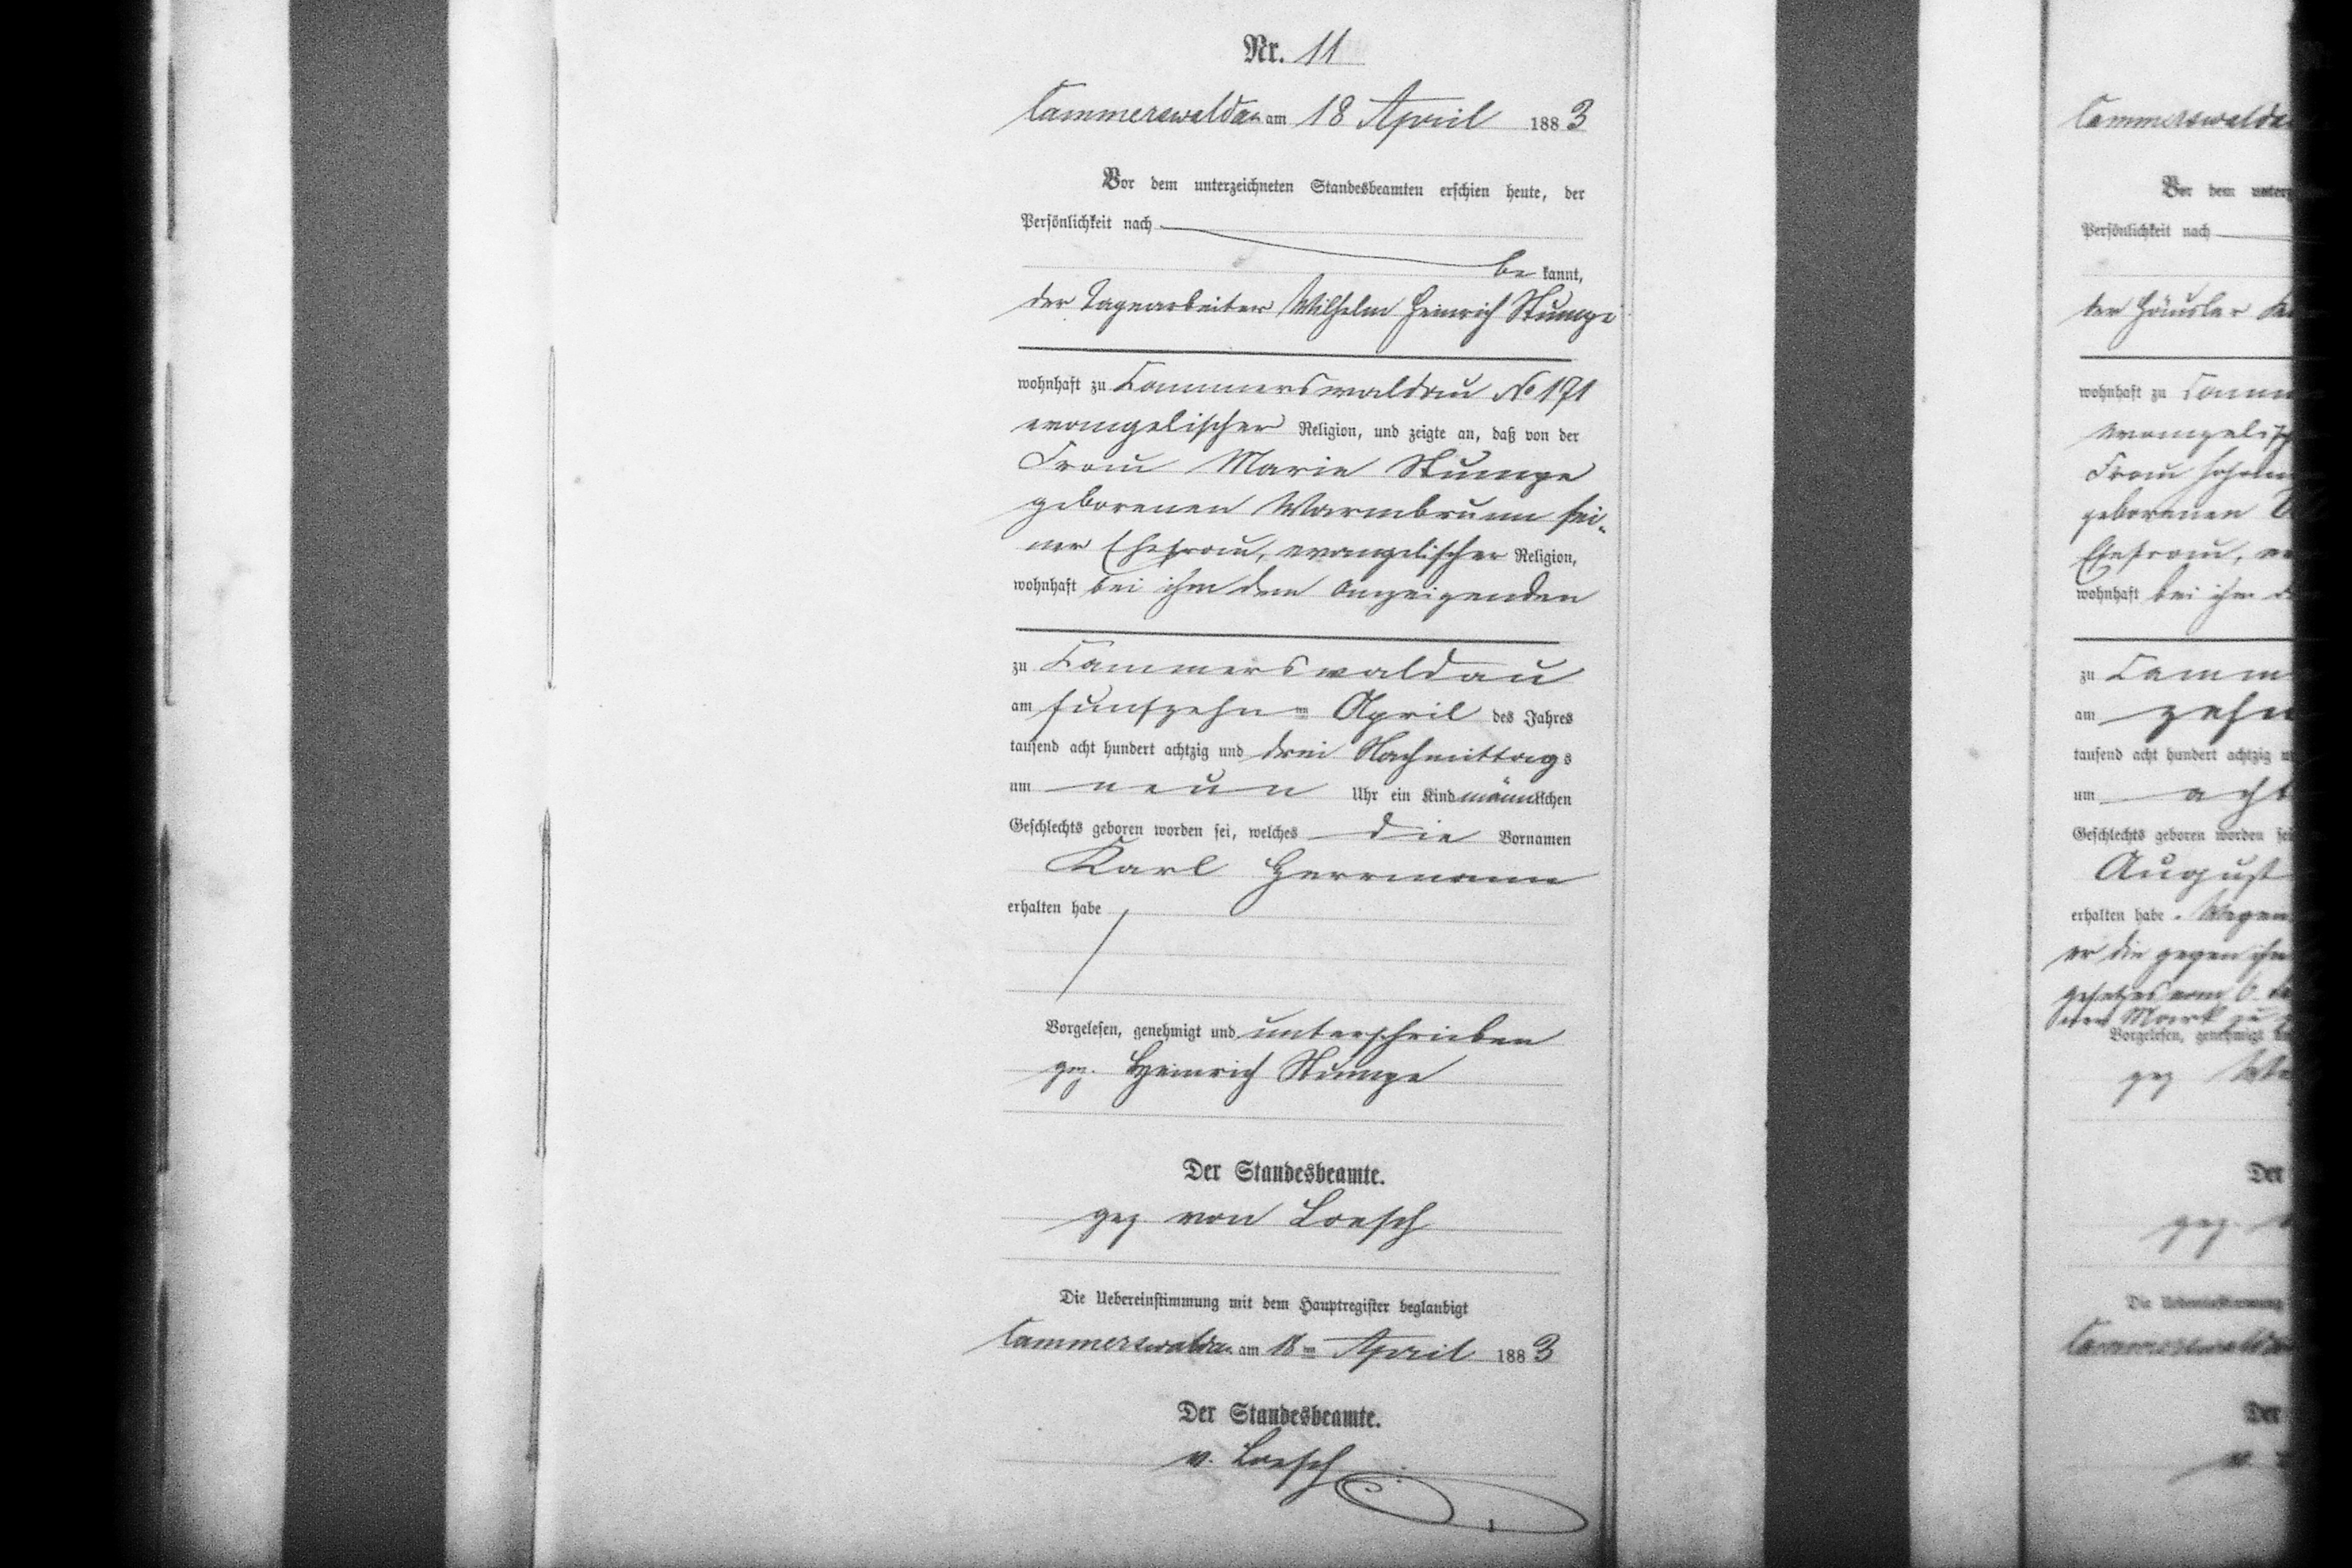 Nr. 11
Cammerswaldau am 18 April 1883
Vor dem unterzeichneten Standesbeamten erschien heute, der
Persönlichkeit nach
be kannt,
der Tagearbeiter Wilhelm Heinrich Stumpe
wohnhaft zu Cammerswaldau No 171
evangelischer Religion, und zeigte an, daß von der
Frau Marie Stumpe
geborenen Warmbrunn sei-
ner Ehefrau, evangelischer Religion,
wohnhaft bei ihm dem Anzeigenden
zu Cammerswaldau
am funfzehn ten April des Jahres
tausend acht hundert achtzig und drei Nachmittags
um neun Uhr ein Kind männlichen
Geschlechts geboren worden sei, welches die Vornamen
Karl Herrmann
erhalten habe
Vorgelesen, genehmigt und unterschrieben
gez. Heinrich Stumpe
Der Standesbeamte.
gez von Loesch
Die Uebereinstimmung mit dem Hauptregister beglaubigt
Cammerswaldau am 18 ten April 1883
Der Standesbeamte.
v. Loesch
Cammerswaldau
Vor dem
Persönlichkeit nach
der Häusler
wohnhaft zu
Frau
geborenen
Ehefrau,
wohnhaft bei ihm
zu
am zehn
tausend acht hundert achtzig
um acht
Geschlechts geboren worden
August
erhalten habe. Wegen
er die gegen ihn
Gesetzes vom 6.
Mark zu
Vorgelesen, genehmigt
gez
Der
gez.
Die Uebereinstimmung
Cammerswaldau
Der
v.